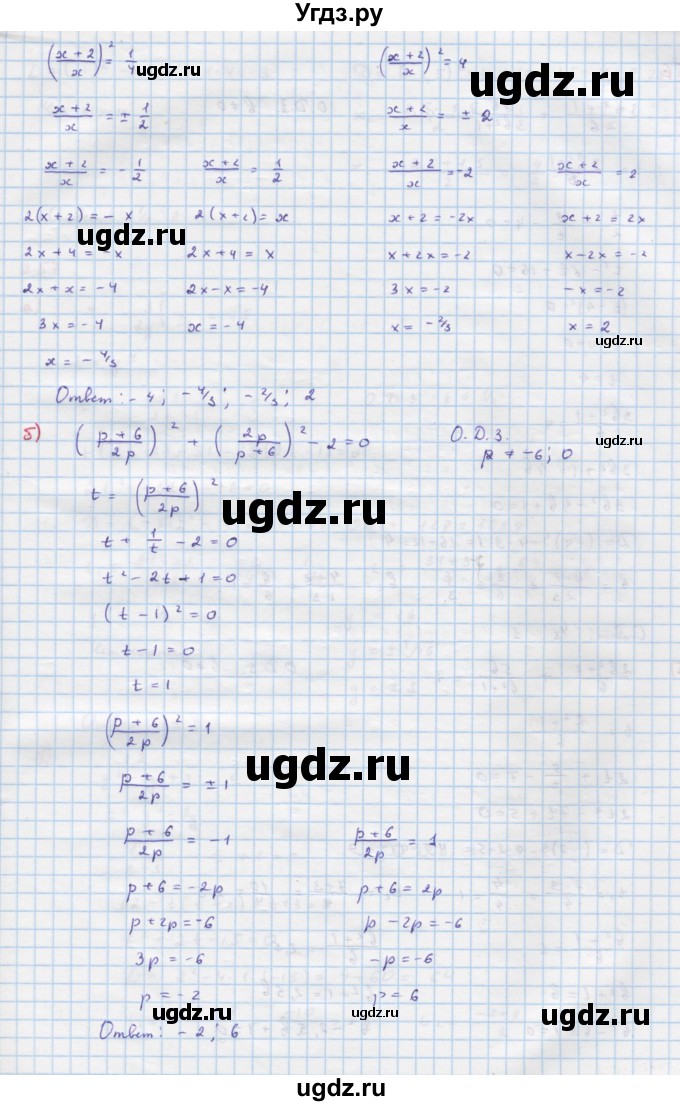 Угдз.ру
((x+2)/x)² = 1/4    ((x+2)/x)² = 4
ugdz.ru ugdz.ru
(x+2)/x = ± 1/2    (x+2)/x = ± 2
(x+2)/x = - 1/2    (x+2)/x = 1/2    (x+2)/x = -2    (x+2)/x = 2
2(x+2) = - x    2(x+2) = x    x+2 = -2x    x+2 = 2x
ugdz.ru
2x+4 = -x    2x+4 = x    x+2x = -2    x-2x = -2
2x+x = -4    2x-x = -4    3x = -2    -x = -2
3x = -4    x = -4    x = -2/3    x = 2
ugdz.ru
x = - 4/3
Ответ: -4; -4/3; -2/3; 2
б) ((p+6)/2p)² + (2p/(p+6))² - 2 = 0    О.Д.З.
ugdz.ru
p ≠ -6; 0
t = ((p+6)/2p)²
ugdz.ru
t + 1/t - 2 = 0
t² - 2t + 1 = 0
ugdz.ru
(t - 1)² = 0
t - 1 = 0
ugdz.ru
t = 1
((p+6)/2p)² = 1
ugdz.ru
(p+6)/2p = ± 1
(p+6)/2p = -1    (p+6)/2p = 1
ugdz.ru
p+6 = -2p    p+6 = 2p
p+2p = -6    p - 2p = -6
3p = -6    -p = -6
p = -2    p = 6
ugdz.ru ugdz.ru ugdz.ru
Ответ: -2; 6
ugdz.ru